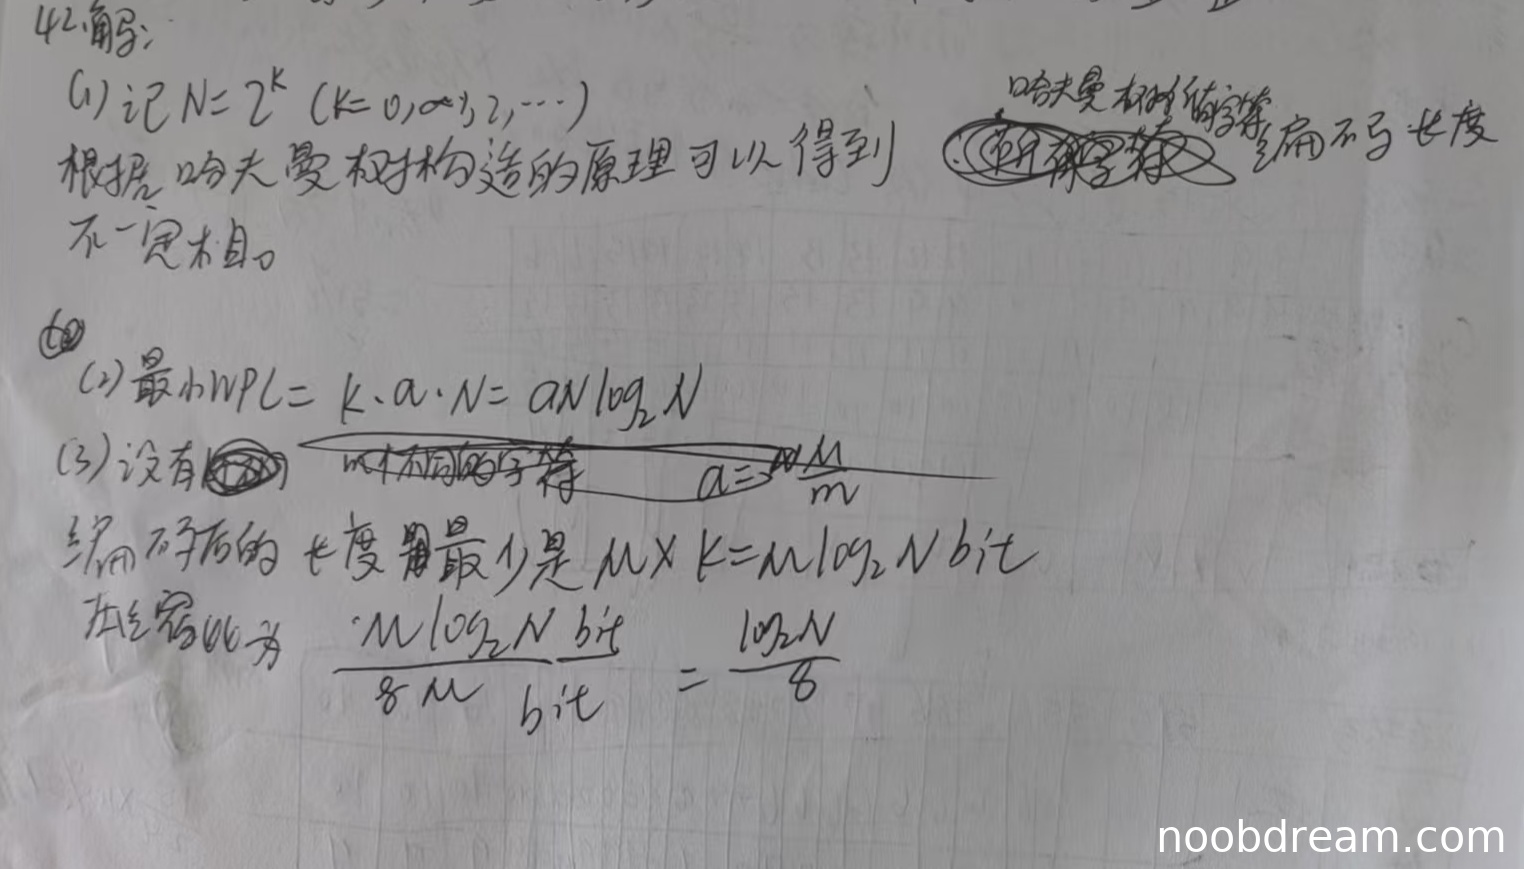 42.解:
(1) 记 N=2^k (k=0,1,2,…)
根据哈夫曼树构造的原理可以得到 哈夫曼树所有字符编码长度
不一定相。
(2) 最小WPL= k·a·N= aNlog₂N
(3) 设有 m个不同的字符 a=M/m
编码后的长度最少是 M×k=Mlog₂N bit
压缩比为 Mlog₂N bit / 8M bit = log₂N / 8
noobdream.com